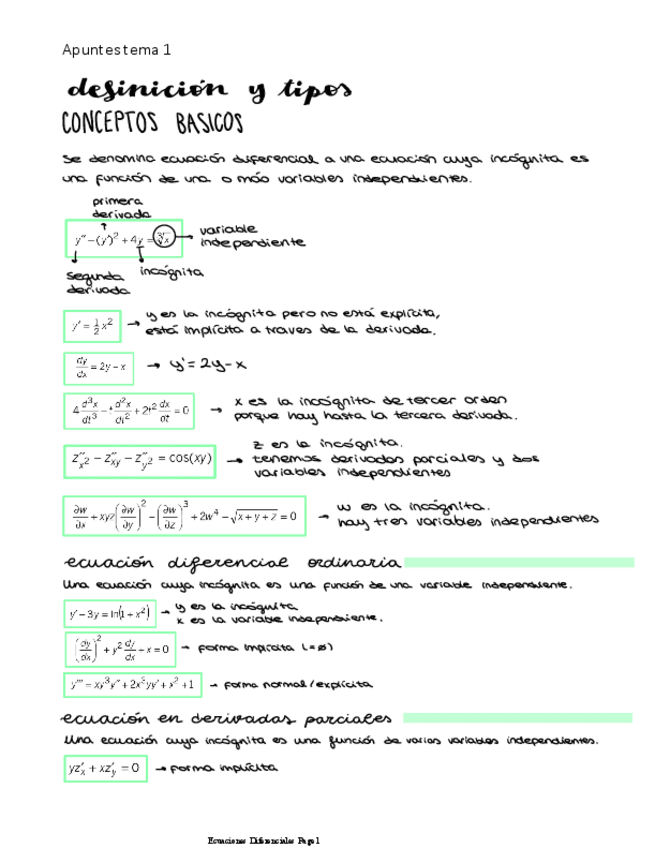 Apuntes tema 1
definición y tipos
CONCEPTOS BASICOS
Se denomina ecuación diferencial a una ecuación cuya incógnita es
una función de una o más variables independientes.
primera
derivada
y'' - (y')² + 4y = ∛x
variable
independiente
segunda
derivada
incógnita
y' = 1/2 x²
→ y es la incógnita pero no está explícita,
está implícita a traves de la derivada.
dy/dx = 2y - x → y' = 2y - x
4 d³x/dt³ - t d²x/dt² + 2t² dx/dt = 0
→ x es la incógnita de tercer orden
porque hay hasta la tercera derivada.
z''x² - z''xy - z''y² = cos(xy)
→ z es la incógnita.
tenemos derivadas parciales y dos
variables independientes
∂w/∂x + xyz(∂w/∂y)² - (∂w/∂z)³ + 2w⁴ - √(x + y + z) = 0
→ w es la incógnita.
hay tres variables independientes
ecuación diferencial ordinaria
Una ecuación cuya incógnita es una función de una variable independiente.
y' - 3y = ln(1 + x²)
→ y es la incógnita
x es la variable independiente.
(dy/dx)² + y² dy/dx - x = 0 → forma implícita (=∅)
y''' = xy³y'' + 2x³yy' + x² + 1 → forma normal/explícita
ecuación en derivadas parciales
Una ecuación cuya incógnita es una función de varias variables independientes.
yz'x + xz'y = 0 → forma implícita
Ecuaciones Diferenciales Page 1